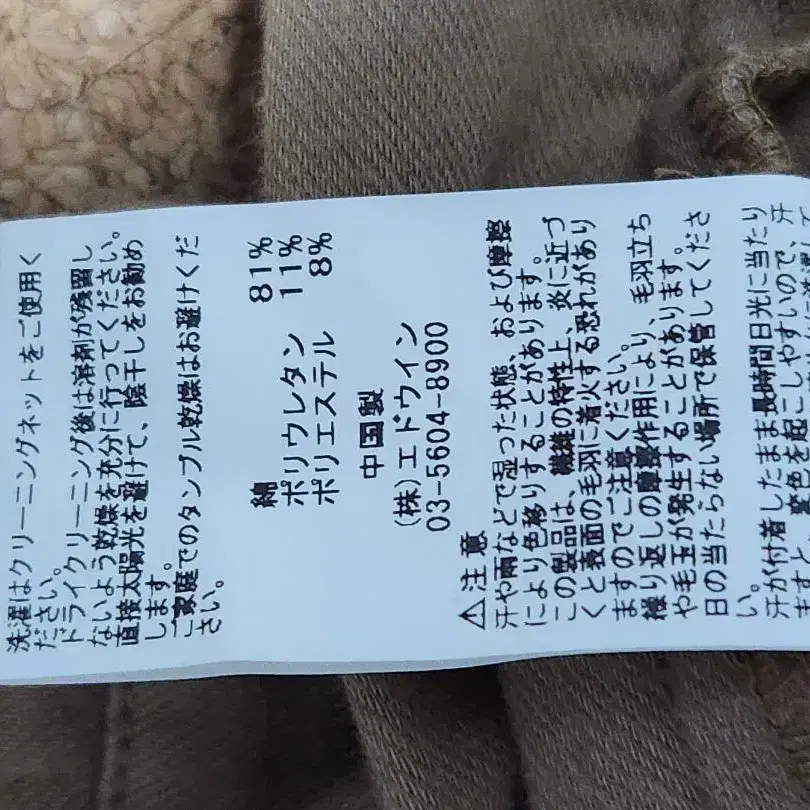 洗濯はクリーニングネットをご使用く
ださい。
ドライクリーニング後は溶剤が残留し
ないよう乾燥を充分に行ってください。
直接太陽光を避けて、陰干しをお勧め
します。
ご家庭でのタンブル乾燥はお避けくだ
さい。
綿 81%
ポリウレタン 11%
ポリエステル 8%
中国製
(株)エドウイン
03-5604-8900
⚠注意
汗や雨などで湿った状態、および摩擦
により色移りすることがあります。
この製品は、繊維の特性上、炎に近づ
くと表面の毛羽に着火する恐れがあり
ますのでご注意ください。
繰り返しの摩擦作用により、毛羽立ち
や毛玉が発生することがあります。
日の当たらない場所で保管してくださ
い。
汗が付着したまま長時間日光に当たり
ますと、変色を起こしやすいので、汗